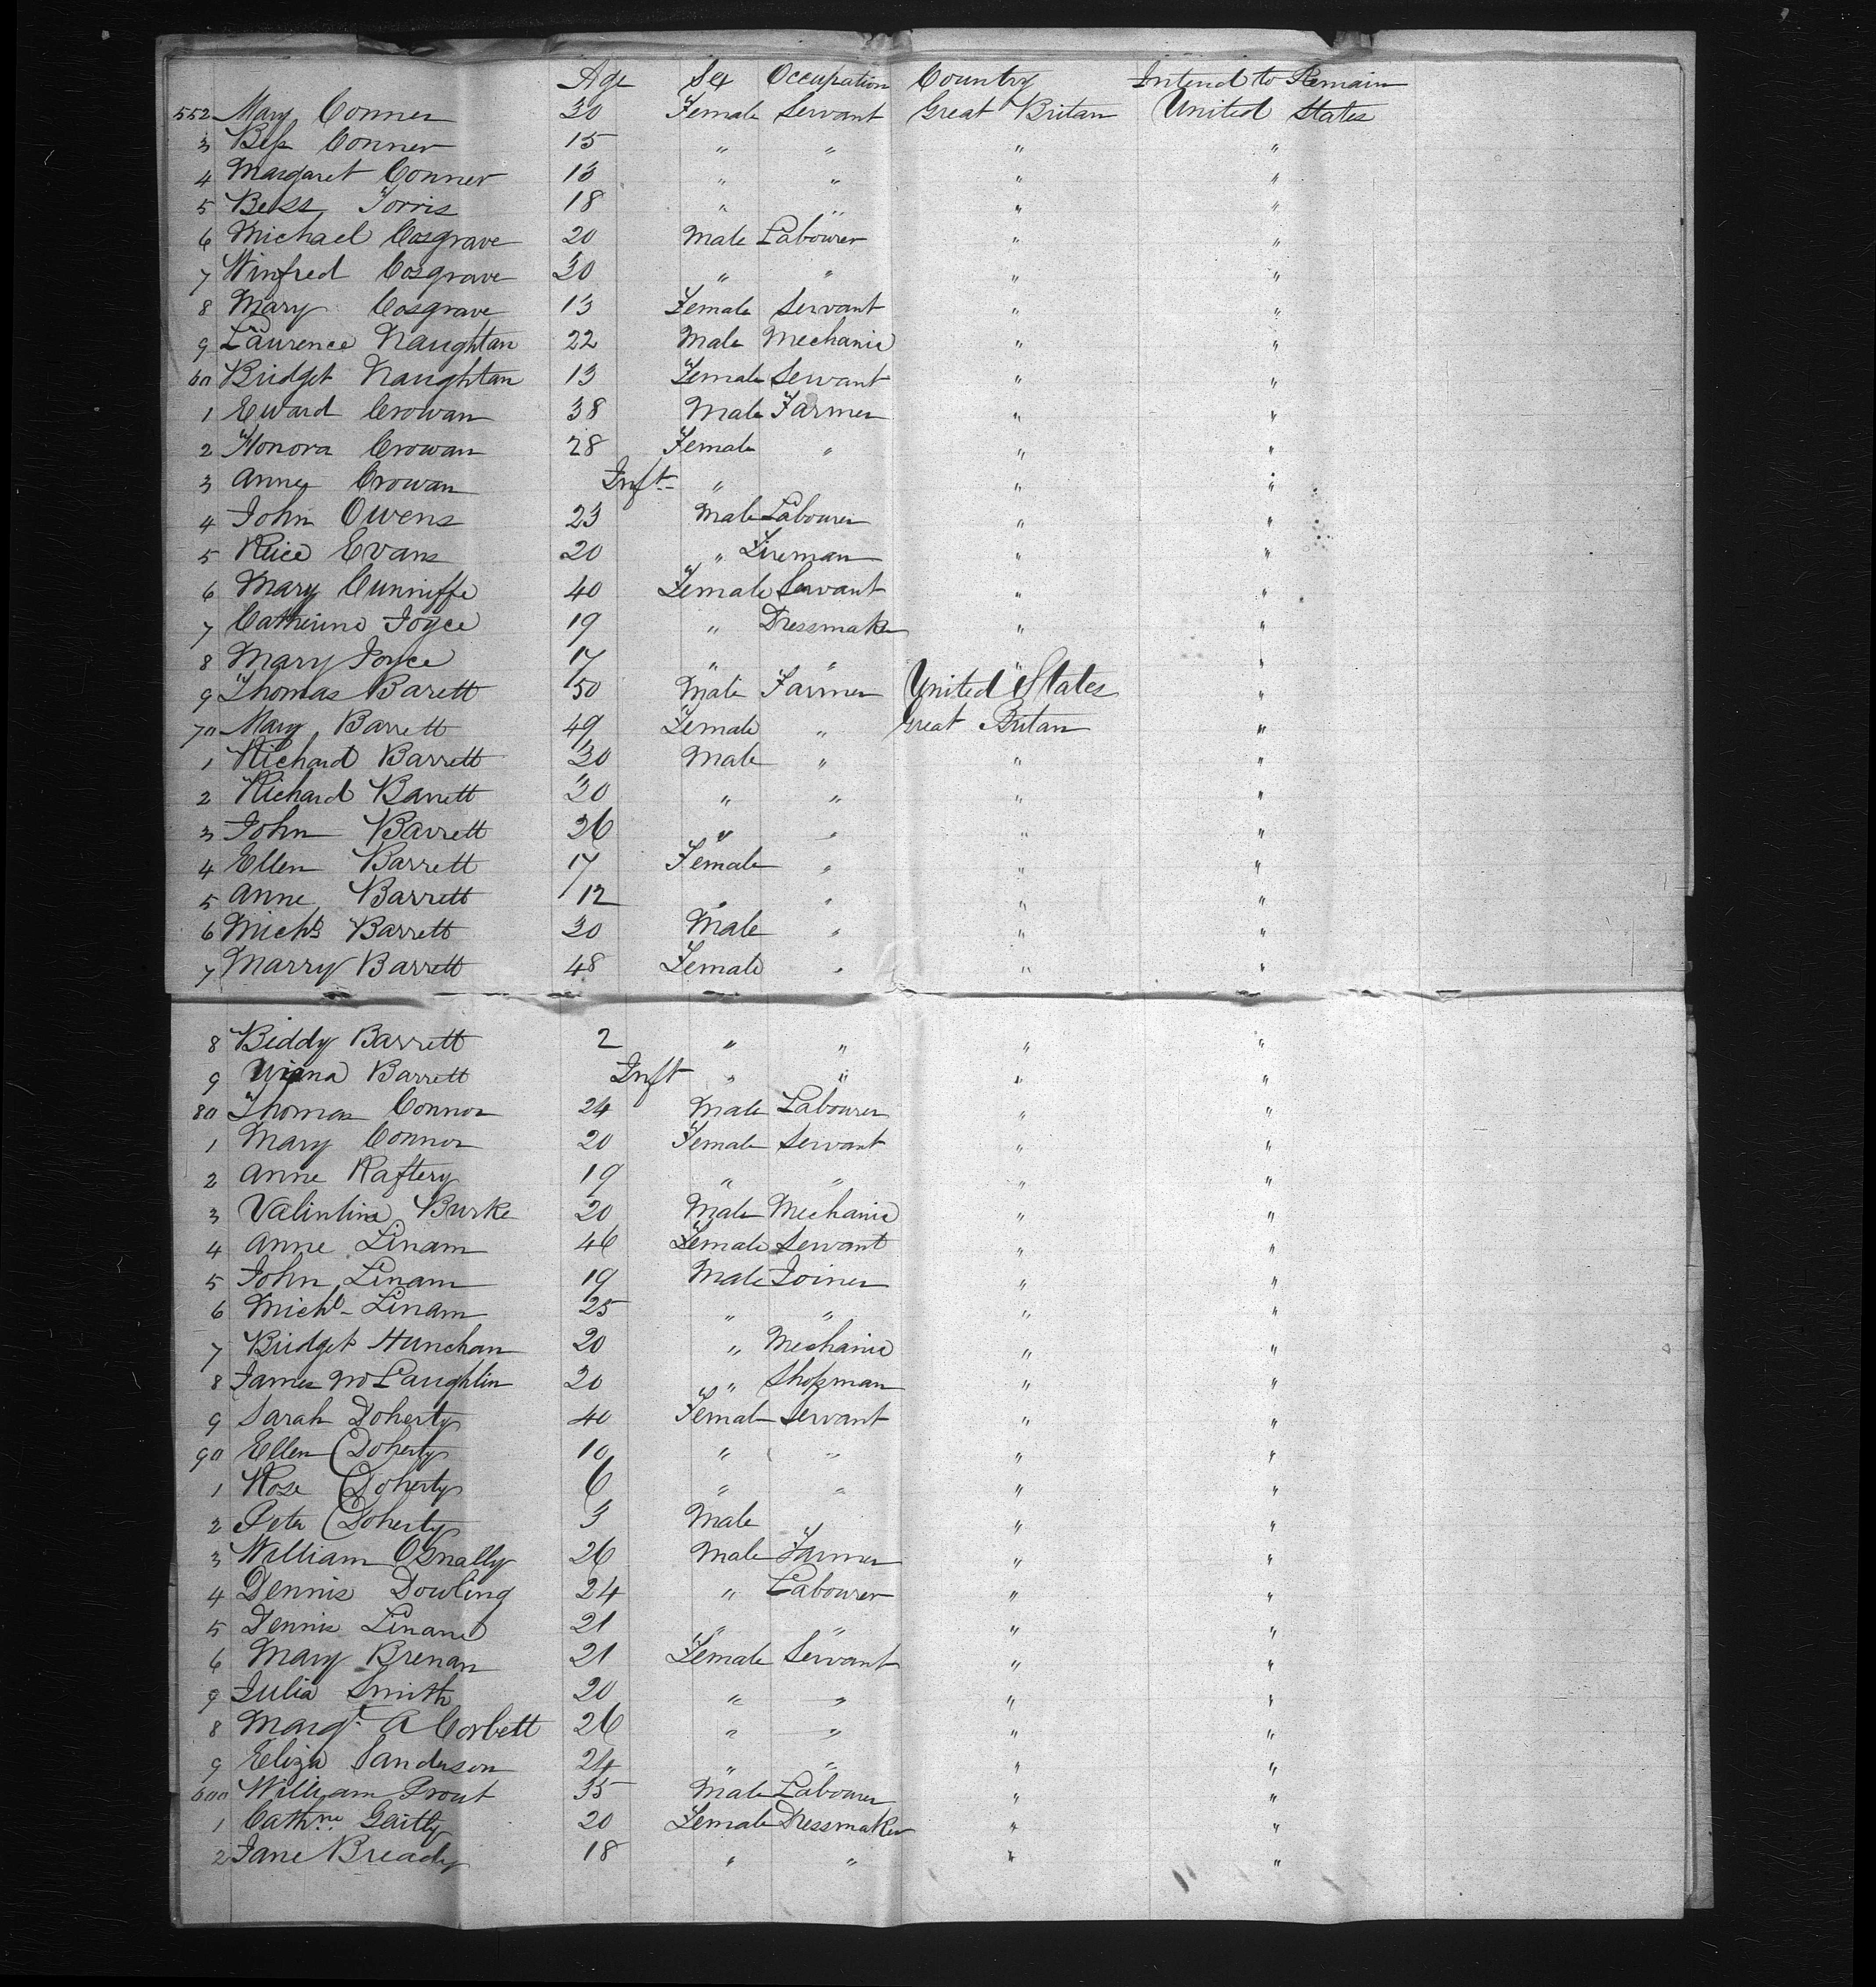 Age Sex Occupation Country Intend to Remain
552 Mary Conner 30 Female Servant Great Britan United States
3 Bess Conner 15 " " " "
4 Margaret Conner 13 " " " "
5 Bess Torris 18 " " " "
6 Michael Cosgrave 20 Male Labourer " "
7 Winfred Cosgrave 30 " " " "
8 Mary Cosgrave 13 Female Servant " "
9 Laurence Naughtan 22 Male Mechanic " "
60 Bridget Naughtan 13 Female Servant " "
1 Eward Crowan 38 Male Farmer " "
2 Honora Crowan 28 Female " " "
3 Anne Crowan Inft " " "
4 John Owens 23 Male Labourer " "
5 Reice Evans 20 " Fireman " "
6 Mary Cunniffe 40 Female Servant " "
7 Catherine Joyce 19 " Dressmaker " "
8 Mary Joyce 17 " " " "
9 Thomas Barett 50 Male Farmer United States "
70 Mary Barrett 49 Female " Great Britan "
1 Richard Barrett 30 Male " " "
2 Richard Barrett 30 " " " "
3 John Barrett 26 " " " "
4 Ellen Barrett 17 Female " " "
5 Anne Barrett 12 " " " "
6 Michl Barrett 30 Male " " "
7 Marry Barrett 48 Female " " "
8 Biddy Barrett 2 " " " "
9 Barrett Inft " " " "
80 Thomas Connor 24 Male Labourer " "
1 Mary Connor 20 Female Servant " "
2 Anne Raftery 19 " " " "
3 Valintine Burke 20 Male Mechanic " "
4 Anne Linam 46 Female Servant " "
5 John Linam 19 Male Joiner " "
6 Michl Linam 25 " " " "
7 Bridget Hunchan 20 " Mechanic " "
8 James McLaughlin 20 " Shopman " "
9 Sarah Doherty 40 Female Servant " "
90 Ellen Doherty 10 " " " "
1 Rose Doherty 6 " " " "
2 Peter Doherty 3 Male " "
3 William 26 Male Farmer " "
4 Dennis Dowling 24 " Labourer " "
5 Dennis Linane 21 " " " "
6 Mary Brenan 21 Female Servant " "
9 Julia Smith 20 " " " "
8 Margt A Corbett 26 " " " "
9 Eliza Sanderson 24 " " " "
600 William Prout 35 Male Labourer " "
1 Cathne Gaitly 20 Female Dressmaker " "
2 Jane Bready 18 " " " "